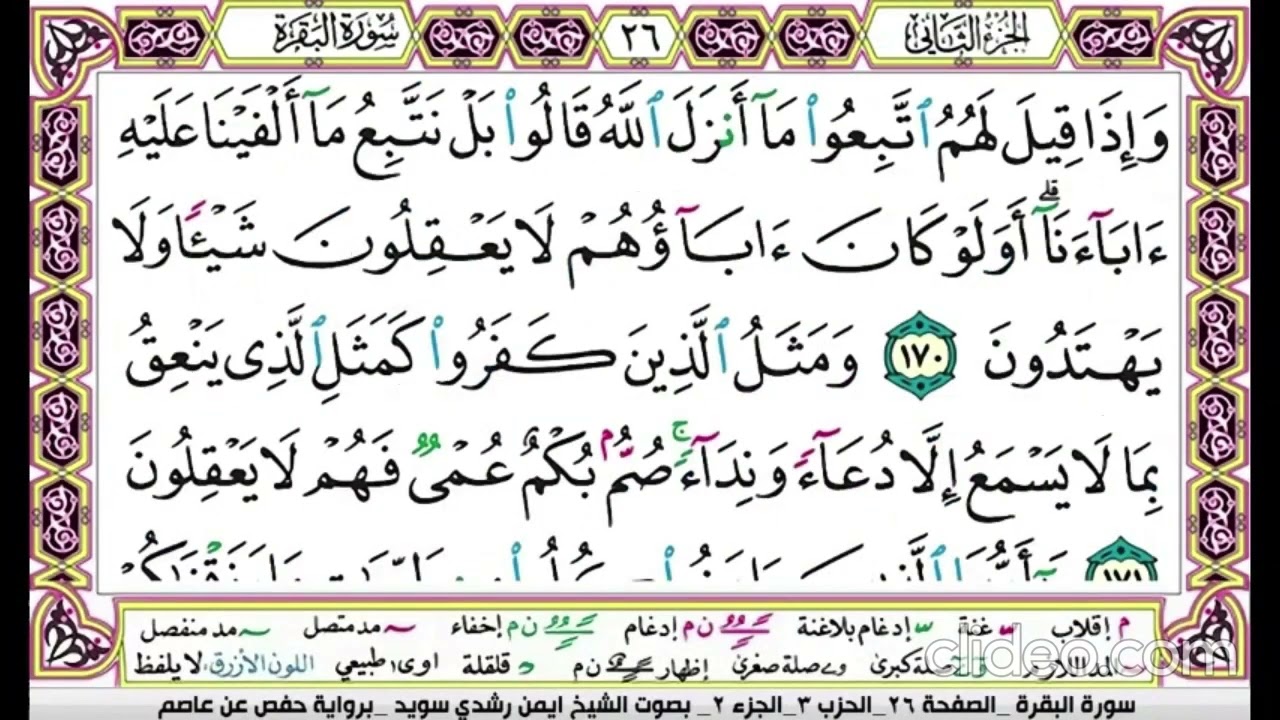 الجزء الثاني
٢٦
سورة البقرة
وَإِذَا قِيلَ لَهُمُ ٱتَّبِعُواْ مَآ أَنزَلَ ٱللَّهُ قَالُواْ بَلْ نَتَّبِعُ مَآ أَلْفَيْنَا عَلَيْهِ
ءَابَآءَنَآۗ أَوَلَوْ كَانَ ءَابَآؤُهُمْ لَا يَعْقِلُونَ شَيْـًٔا وَلَا
يَهْتَدُونَ ١٧٠ وَمَثَلُ ٱلَّذِينَ كَفَرُواْ كَمَثَلِ ٱلَّذِى يَنْعِقُ
بِمَا لَا يَسْمَعُ إِلَّا دُعَآءً وَنِدَآءًۚ صُمُّۢ بُكْمٌ عُمْىٌ فَهُمْ لَا يَعْقِلُونَ
١٧١
م إقلاب غنة إدغام بلاغنة ن م إدغام ن م إخفاء مد متصل مد منفصل
صلة كبرى وے صلة صغرى إظهار ن م قلقلة اوى طبيعي اللون الأزرق لا يلفظ
clideo.com
سورة البقرة _الصفحة ٢٦_الحزب ٣_الجزء ٢_ بصوت الشيخ ايمن رشدي سويد _برواية حفص عن عاصم